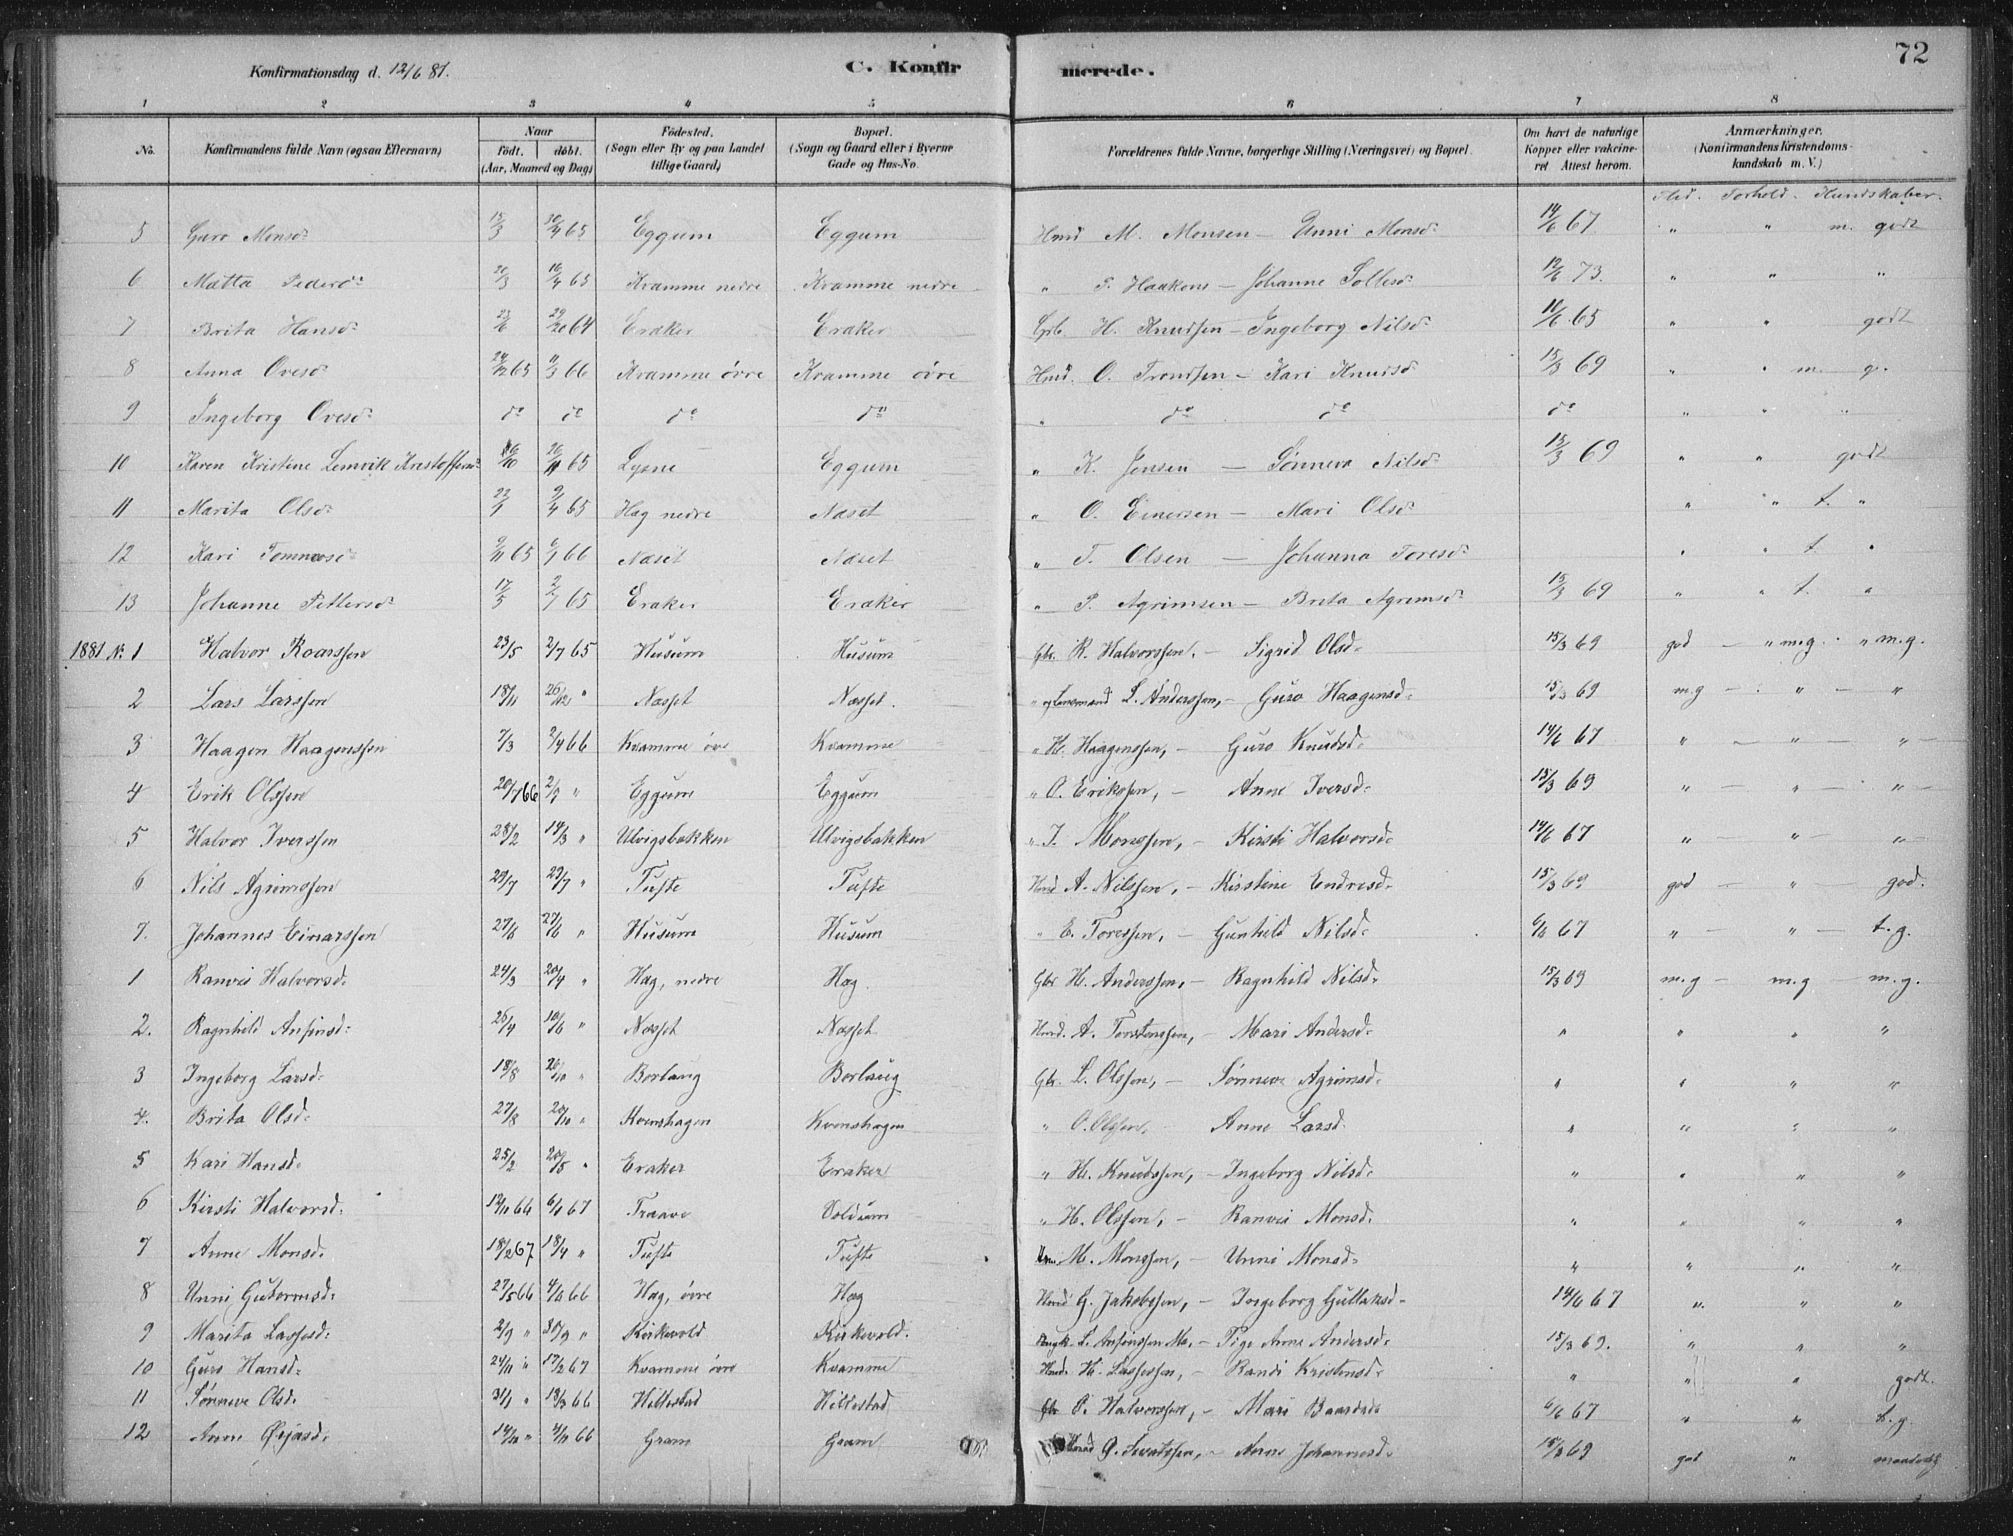 Konfirmationsdag d. 12/6 81. C. Konfirmerede. 72
1 2 3 4 5 6 7 8
No. Konfirmandens fulde Navn (ogsaa Efternavn) Naar født. døbt. (Aar, Maaned og Dag) Fødested. (Sogn eller By og paa Landet tillige Gaard) Bopæl. (Sogn og Gaard eller i Byerne Gade og Hus-No. Forældrenes fulde Navne, borgerlige Stilling (Næringsvei) og Bopæl. Om havt de naturlige Kopper eller vakcineret. Attest herom. Anmærkninger. (Konfirmandens Kristendomskundskab m. V.)
Flid. Forhold. Kundskaber.
5 Guro Monsd: 15/3 30/4 65 Eggum Eggum Hmd M. Monsen — Unni Monsd: 14/6 67 " " m. godt
6 Matta Pedersd: 21/3 16/4 65 Kvamme nedre Kvamme nedre " P. Haakens — Johanne Sollesd: 12/6 73. " " "
7 Brita Hansd: 23/6 64 Eraker Eraker Grb. H. Knudsen — Ingeborg Nilsd: 11/6 65 " " godt
8 Anna Ovesd: 24/12 65 11/3 66 Kvamme övre Kvamme övre Hmd. O. Trondsen — Kari Knudsd 15/3 69 " " m. g.
9 Ingeborg Ovesd: do do do do " do do do " " "
10 Karen Kristine Lemvik Kristoffersd: 26/11 65 Lysne Eggum " K. Jensen — Sönneva Nilsd: 15/3 69 " " godt
11 Marita Olsd: 9/4 65 Hæg nedre Næset " O. Einersen — Mari Olsd: " " t. "
12 Kari Tommasd: 9/11 65 6/1 66 Næset Næset " T. Olsen — Johanna Toresd: " " t. "
13 Johanne Pettersd: 17/5 2/7 65 Eraker Eraker " P. Agrimsen — Brita Agrimsd: 15/3 69 " " t. "
1881 No. 1 Halvor Roarssen 23/5 2/7 65 Husum Husum Gbr. R. Halvorssen. — Sigrid Olsd: 15/3 69 god — " m.g. " m.g.
2 Lars Larssen 18/11 26/12 " Næsset Næsset. " og Lensmand L. Anderssen, — Guro Haagensd: 15/3 69 m.g — " — "
3 Haagen Haagenssen 7/3 2/4 66 Kvamme övre Kvamme " H. Haagenssen, — Guro Knudsd: 14/6 67 " — " — " —
4 Erik Olssen 20/7 66 2/9 " Eggum Eggum " O. Erikssen, — Anne Iversd: 15/3 69 " — " — " —
5 Halvor Iverssen 28/2 14/3 " Ulvigsbakken Ulvigsbakken " I. Monssen, — Kirsti Halvorsd: 14/6 67 " — " — " —
6 Nils Agrimssen 29/7 29/7 " Tufte Tufte Hmd A. Nilssen, — Kirstine Endresd: 15/3 69 god — " — god.
7. Johannes Einarssen 27/6 27/6 " Husum Husum " E. Toressen, — Gunhild Nilsd: 6/6 67 " — " — t.g.
1 Ranvei Halvorsd: 24/3 20/4 " Hæg, nedre Hæg. Gbr H. Anderssen, — Ragnhild Nilsd: 15/3 69 m.g — m.g — m.g.
2. Ragnhild Anfinsd: 26/4 10/6 " Næsset Næsset Hmd. A. Torstenssen, — Mari Andersd: " " " "
3 Ingeborg Larsd: 18/8 26/10 " Borlaug Borlaug Gbr. L. Olssen, — Sønneve Agrimsd: " " " "
4. Brita Olsd: 27/8 20/10 " Kvenshagen Kvenshagen " O. Olssen, Anne Larsd: " " " "
5 Kari Hansd: 25/2 20/5 " Eraker Eraker " H. Knudssen, — Ingeborg Nilsd: " " " "
6 Kirsti Halvorsd: 12/11 66 6/1 67 Traave Voldum " H. Olssen, — Ranvei Monsd: " " " "
7 Anne Monsd: 18/2 67 18/4 " Tufte Tufte Hm. M. Monssen, — Unni Monsd: " " " "
8 Unni Gutormsd: 27/5 66 66 Hæg, övre Hæg Hmd G. Jakobssen, — Ingeborg Gullaksd: 14/6 67 " " "
9 Marita Lassesd: 2/9 " 30/9 " Kirkevold Kirkevold. L. Anfinssen — Pige Anne Andersd: 15/3 69. " " "
10 Guro Hansd: 24/11 " 17/2 67 Kvamme övre Kvamme Hmd. H. Lassessen, — Randi Kristensd: " " " godt.
11 Sønneve Olsd. 31/1 " 18/3 66 Hillestad Hillestad Gbr O. Halvorssen, — Mari Baardsd: 6/6 67 " " t.g.
12 Anne Ørjasd: 14/10 " 4/11 66 Gram Gram Hmd Ø. Sivertssen, — Anne Johannesd: 15/3 69 god " maadelig